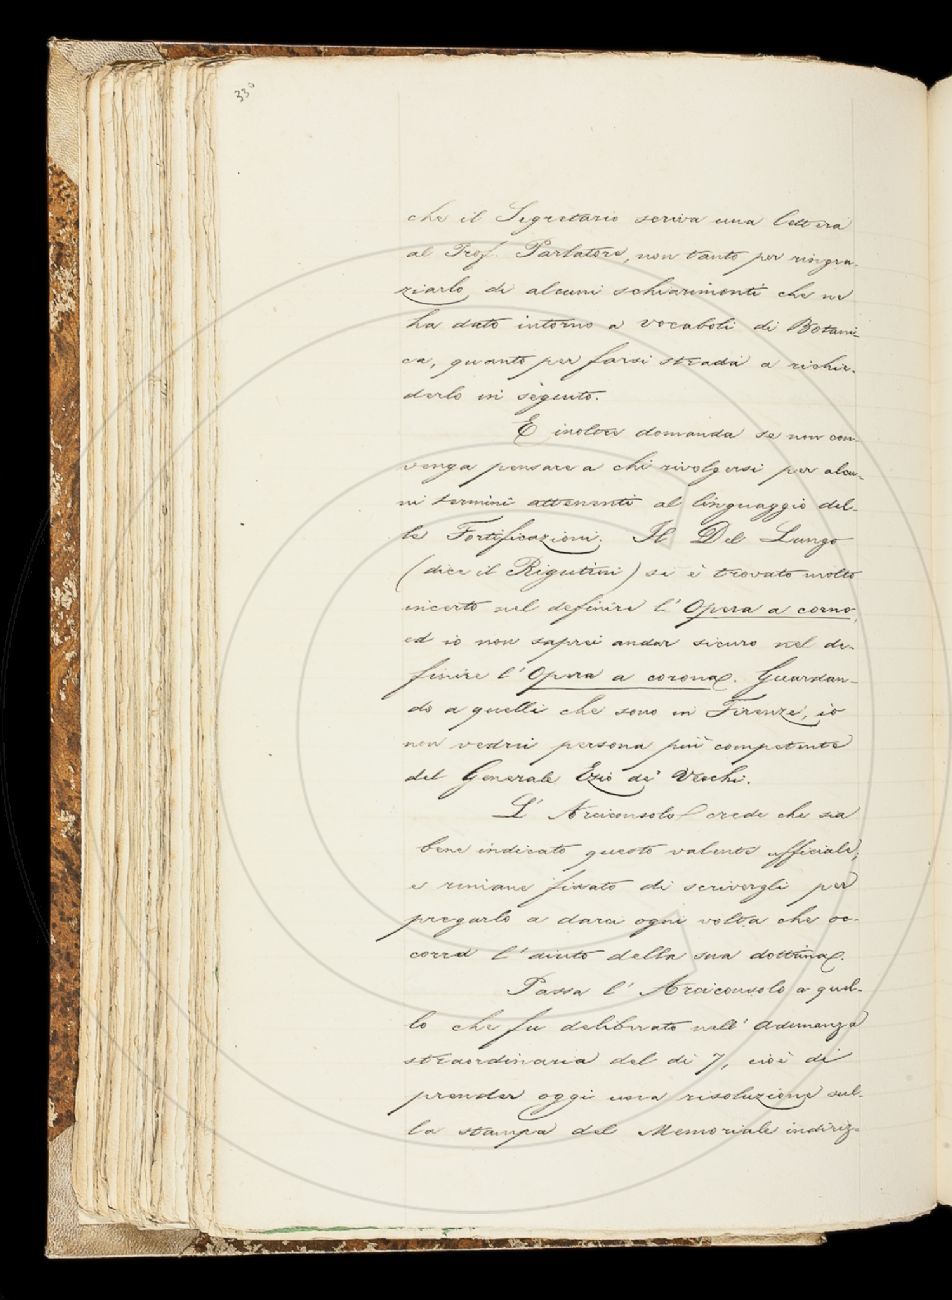 330
che il Segretario scriva una lettera
al Prof. Parlatore, non tanto per ringra-
ziarlo di alcuni schiarimenti che ne
ha dato intorno a vocaboli di Botani-
ca, quanto per farsi strada a richie-
derlo in sèguito.
E inoltre domanda se non con-
venga pensare a chi rivolgersi per alcu-
ni termini attenenti al linguaggio del-
le Fortificazioni. Il Del Lungo
(dice il Rigutini) si è trovato molto
incerto nel definire l'Opera a corno,
ed io non saprei andar sicuro nel de-
finire l'Opera a corona. Guardan-
do a quelli che sono in Firenze, io
non vedrei persona più competente
del Generale Ezio de' Vecchi.
L'Arciconsolo crede che sia
bene indicato questo valente officiale;
e rimane fissato di scrivergli per
pregarlo a darci ogni volta che oc-
corra l'aiuto della sua dottrina.
Passa l'Arciconsolo a quel-
lo che fu deliberato nell'Adunanza
straordinaria del dì 7, cioè di
prender oggi una risoluzione sul-
la stampa del Memoriale indiriz-